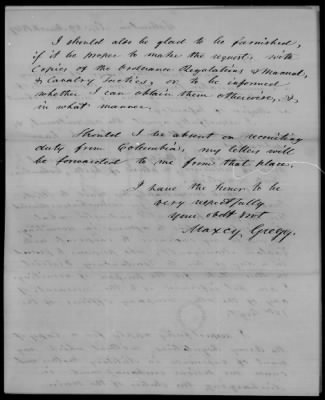 I should also be glad to be furnished,
if it be proper to make the request, with
Copies of the Ordnance Regulations & Manual,
& Cavalry Tactics, or to be informed
whether I can obtain them otherwise, &,
in what manner.
Should I be absent on recruiting
duty from Columbia, my letters will
be forwarded to me from that place.
I have the honor to be
very respectfully
Your obdt svt
Maxcy Gregg.